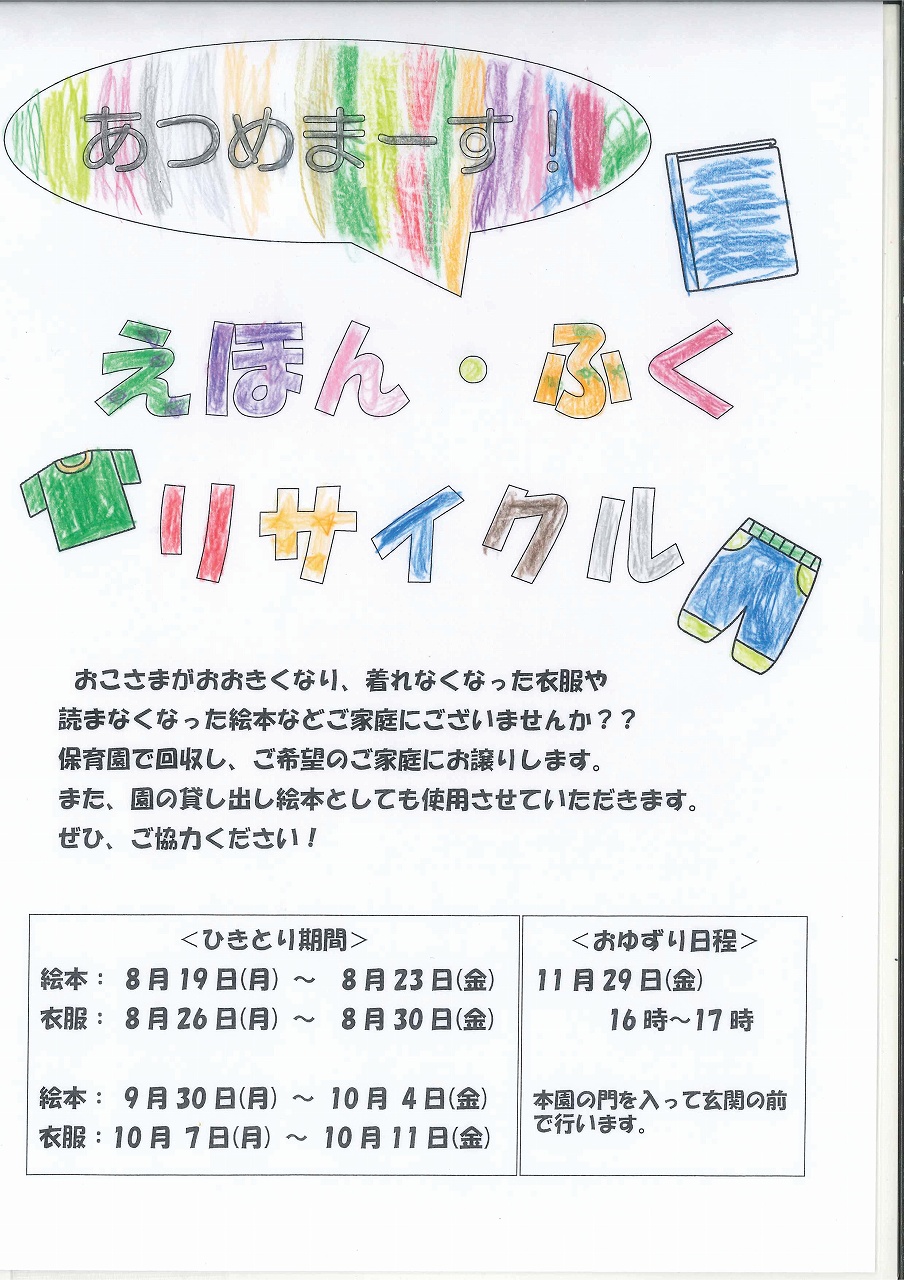 あつめまーす！
えほん・ふく
リサイクル
おこさまがおおきくなり、着れなくなった衣服や
読まなくなった絵本などご家庭にございませんか？？
保育園で回収し、ご希望のご家庭にお譲りします。
また、園の貸し出し絵本としても使用させていただきます。
ぜひ、ご協力ください！
＜ひきとり期間＞
絵本： 8月19日(月) ～ 8月23日(金)
衣服： 8月26日(月) ～ 8月30日(金)
絵本： 9月30日(月) ～ 10月 4日(金)
衣服：10月 7日(月) ～ 10月11日(金)
＜おゆずり日程＞
11月29日(金)
16時～17時
本園の門を入って玄関の前
で行います。